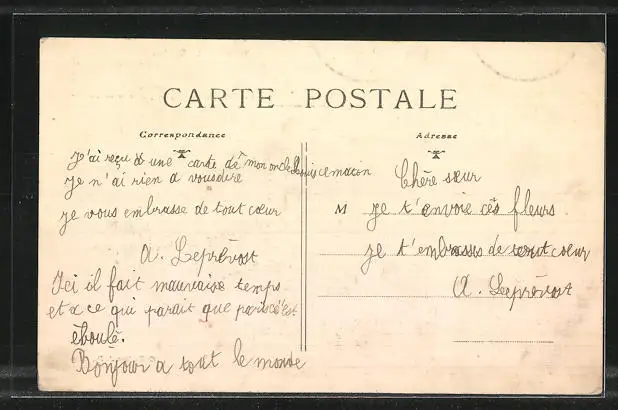 CARTE POSTALE
Correspondance
Adresse
J'ai reçu une carte de mon oncle Louis ce matin
Je n'ai rien a vous dire
je vous embrasse de tout cœur
A. Leprévost
Ici il fait mauvaise temps
et a ce qui parait que paris c'est
éboulé.
Bonjour a tout le monde
Chère sœur
M je t'envoie cés fleurs
je t'embrasse de tout cœur
A. Leprévost